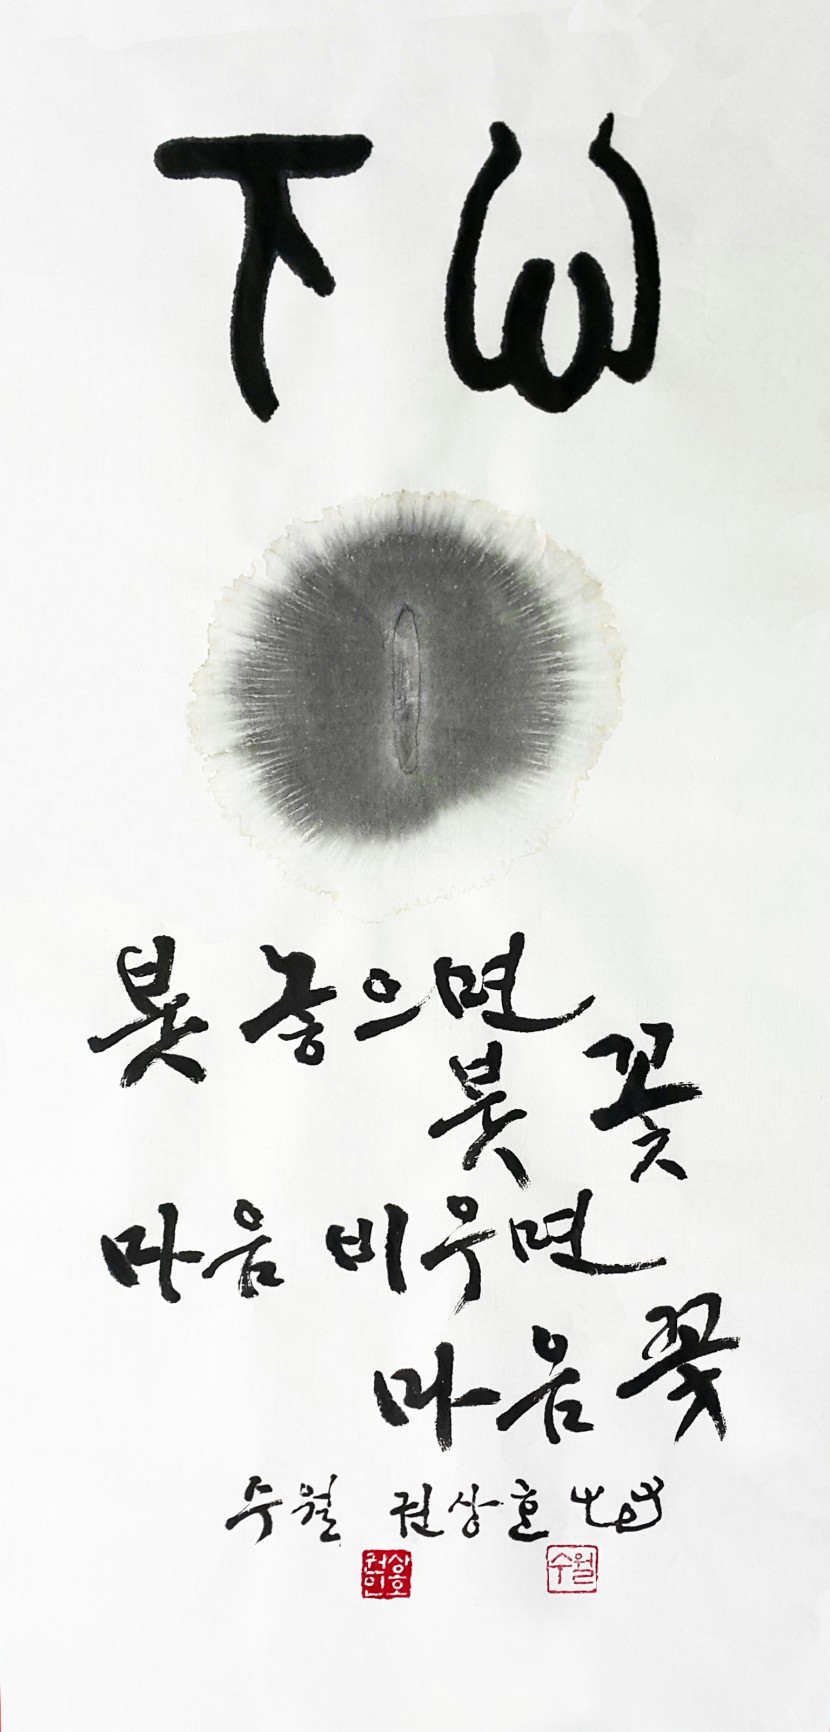 下心
붓 놓으면
붓꽃
마음 비우면
마음꽃
수월 권상호
권상호인
수월